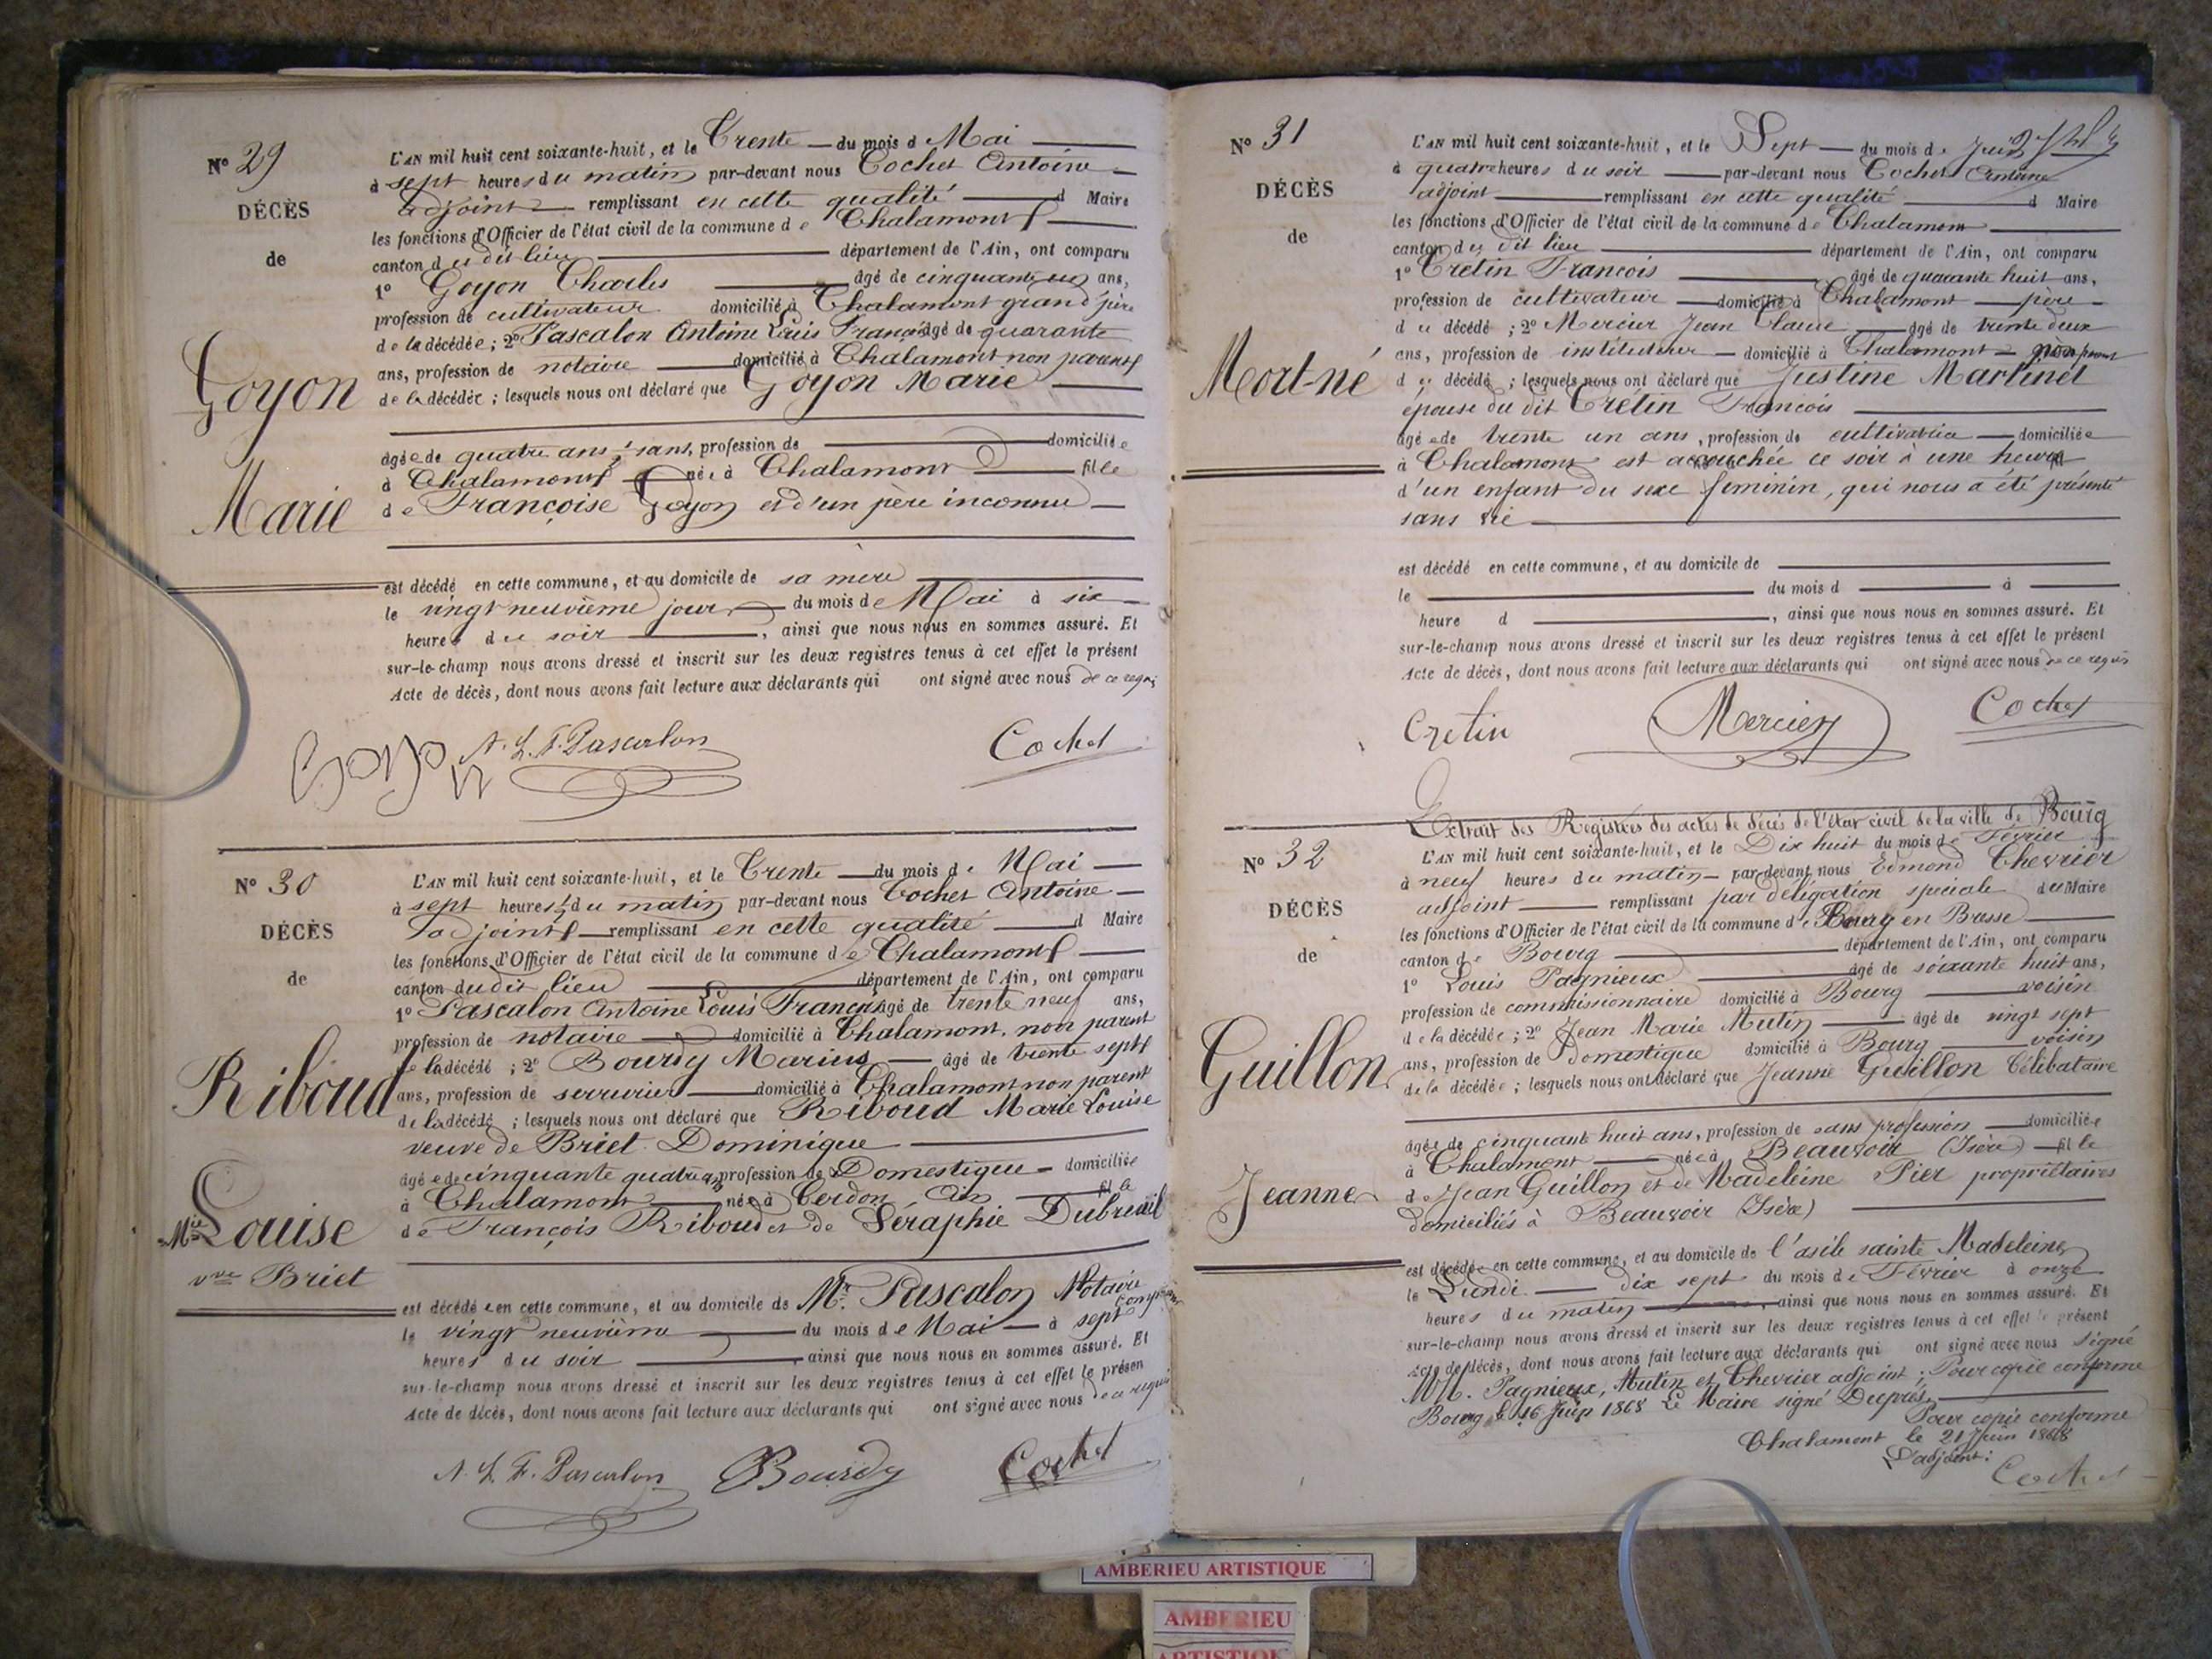 N° 29
DÉCÈS
de
Goyon
Marie
L'AN mil huit cent soixante-huit, et le Trente du mois d Mai
à sept heures du matin par-devant nous Cochet Antoine
adjoint remplissant en cette qualité d Maire
les fonctions d'Officier de l'état civil de la commune de Chalamont
canton du dit lieu département de l'Ain, ont comparu
1° Goyon Charles âgé de cinquante ans,
profession de cultivateur domicilié à Chalamont grand père
de la décédée; 2° Pascalon Antoine Louis François âgé de quarante
ans, profession de notaire domicilié à Chalamont non parent
de la décédée; lesquels nous ont déclaré que Goyon Marie
âgée de quatre ans ½ sans, profession de domiciliée
à Chalamont née à Chalamont fille
de Françoise Goyon et d'un père inconnu
est décédé en cette commune, et au domicile de sa mère
le vingt neuvième jour du mois de Mai à six
heures du soir, ainsi que nous nous en sommes assuré. Et
sur-le-champ nous avons dressé et inscrit sur les deux registres tenus à cet effet le présent
Acte de décès, dont nous avons fait lecture aux déclarants qui ont signé avec nous de ce requis
Goyon A. L. F. Pascalon Cochet
N° 30
DÉCÈS
de
Riboud
Mie Louise
vve Briet
L'AN mil huit cent soixante-huit, et le Trente du mois de Mai
à sept heures ½ du matin par-devant nous Cochet Antoine
adjoint remplissant en cette qualité d Maire
les fonctions d'Officier de l'état civil de la commune de Chalamont
canton du dit lieu département de l'Ain, ont comparu
1° Pascalon Antoine Louis François âgé de trente neuf ans,
profession de notaire domicilié à Chalamont, non parent
de la décédé; 2° Bourdy Marius âgé de trente sept
ans, profession de serrurier domicilié à Chalamont non parent
de la décédé; lesquels nous ont déclaré que Riboud Marie Louise
veuve de Briet Dominique
âgée de cinquante quatre ans profession de Domestique domiciliée
à Chalamont née à Cerdon Ain fille
de François Riboud et de Séraphie Dubreuil
est décédée en cette commune, et au domicile de Mr. Pascalon Notaire
le vingt neuvième du mois de Mai à sept
heures du soir, ainsi que nous nous en sommes assuré. Et
sur-le-champ nous avons dressé et inscrit sur les deux registres tenus à cet effet le présen
Acte de décès, dont nous avons fait lecture aux déclarants qui ont signé avec nous de ce requis
A. L. F. Pascalon Bourdy Cochet
N° 31
DÉCÈS
de
Mort-né
L'AN mil huit cent soixante-huit, et le Sept du mois de Juin
à quatre heures du soir par-devant nous Cochet Antoine
adjoint remplissant en cette qualité d Maire
les fonctions d'Officier de l'état civil de la commune de Chalamont
canton du dit lieu département de l'Ain, ont comparu
1° Cretin François âgé de quarante huit ans,
profession de cultivateur domicilié à Chalamont père
du décédé; 2° Mercier Jean Claude âgé de trente deux
ans, profession de instituteur domicilié à Chalamont non parent
du décédé; lesquels nous ont déclaré que Justine Martinet
épouse du dit Cretin François
âgée de trente un ans, profession de cultivatrice domiciliée
à Chalamont est accouchée ce soir à une heure
d'un enfant du sexe féminin, qui nous a été présenté
sans vie
est décédé en cette commune, et au domicile de
le du mois d à
heure d , ainsi que nous nous en sommes assuré. Et
sur-le-champ nous avons dressé et inscrit sur les deux registres tenus à cet effet le présent
Acte de décès, dont nous avons fait lecture aux déclarants qui ont signé avec nous de ce requis
Cretin Mercier Cochet
N° 32
DÉCÈS
de
Guillon
Jeanne
Extrait des Registres des actes de décès de l'état civil de la ville de Bourg
L'AN mil huit cent soixante-huit, et le Dix huit du mois de Février
à neuf heures du matin par-devant nous Edmond Chevrier
adjoint remplissant par délégation spéciale du Maire
les fonctions d'Officier de l'état civil de la commune de Bourg en Bresse
canton de Bourg département de l'Ain, ont comparu
1° Louis Pagnieux âgé de soixante huit ans,
profession de commissionnaire domicilié à Bourg voisin
de la décédée; 2° Jean Marie Mutin âgé de vingt sept
ans, profession de domestique domicilié à Bourg voisin
de la décédée; lesquels nous ont déclaré que Jeanne Guillon Célibataire
âgée de cinquante huit ans, profession de sans profession domiciliée
à Chalamont née à Beauvoir (Isère) fille
de Jean Guillon et de Madeleine Pier propriétaires
domiciliés à Beauvoir (Isère)
est décédée en cette commune, et au domicile de l'asile sainte Madeleine
le Lundi dix sept du mois de Février à onze
heures du matin, ainsi que nous nous en sommes assuré. Et
sur-le-champ nous avons dressé et inscrit sur les deux registres tenus à cet effet le présent
Acte de décès, dont nous avons fait lecture aux déclarants qui ont signé avec nous signé
MM. Pagnieux, Mutin et Chevrier adjoint; Pour copie conforme
Bourg le 16 Juin 1868 Le Maire signé Duprés
Pour copie conforme
Chalamont le 21 Juin 1868
L'adjoint:
Cochet
AMBERIEU ARTISTIQUE
AMBERIEU
ARTISTIQUE